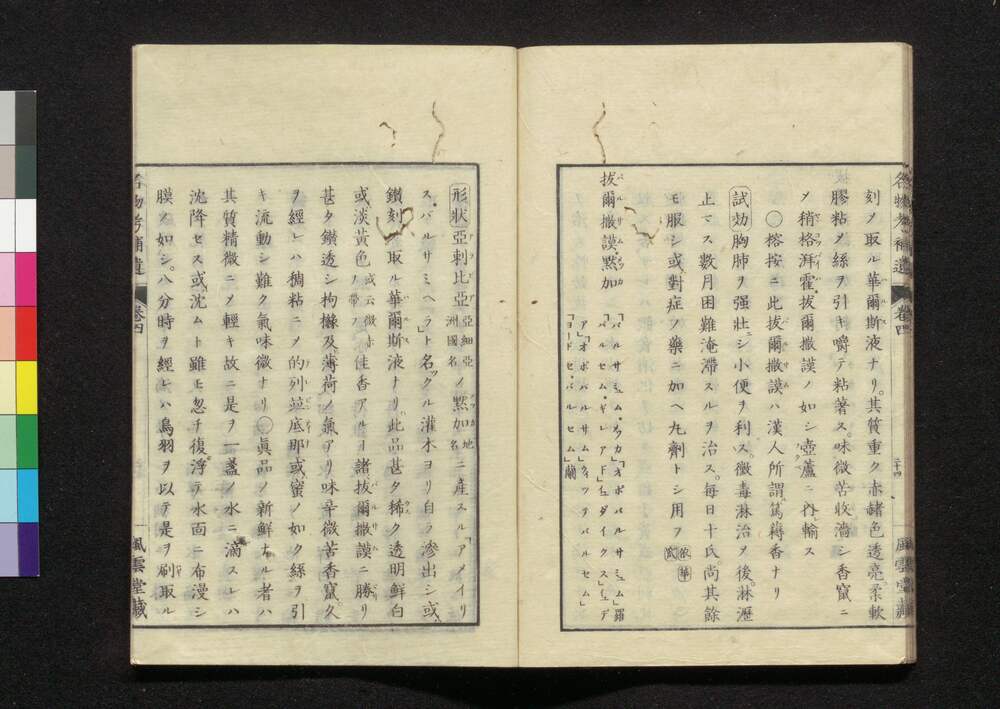 刻メ取ル華爾斯液ナリ。其質重ク赤赭色透亮。柔軟
膠粘ノ絲ヲ引キ嚼テ粘著ス。味微苦收濇シ香竄ニ
メ稍格湃霍拔爾撒謨ノ如シ壺蘆ニ内輸ス
○榕按ニ此拔爾撒謨ハ漢人所謂篤耨香ナリ
試効 胸肺ヲ強壯ニシ小便ヲ利ス。黴毒淋治ノ後。淋瀝
止マス數月困難淹滯スルヲ治ス。每日十氏。尚其餘
モ服シ或對症ノ藥ニ加ヘ丸劑トシ用フ 依百 華
拔爾撒謨默加
「バルサミュム・メッカ」「オポバルサミュム」羅
「バルセム・ギレアド」「ユダイクス」「ユデ
ア」「オポバルサム」「ウィッテバルセム」
「ヨードセ・バルセム」蘭
形狀 亞剌比亞 亞細亞洲國名 ノ默加 地名 ニ產スル「アメイリ
ス・バルサミヘラ」ト名ツクル灌木ヨリ自ラ滲出シ或
鑽刻メ取ル華爾斯液ナリ。此品甚タ稀ク透明鮮白
或淡黃色 或云微赤ヲ帶フ 佳香アル ヿ 諸拔爾撒謨ニ勝リ
甚タ鑽透シ拘櫞及薄荷ノ氣アリ味辛微苦香竄。久
ヲ經レハ稠粘ニメ的列並底那或蜜ノ如ク絲ヲ引
キ流動シ難ク氣味微ナリ○眞品ノ新鮮ナル者ハ
其質精微ニメ輕キ故ニ是ヲ一盞ノ水ニ滴スレハ
沈降セス或沈ムト雖モ忽チ復浮テ水面ニ布漫シ
膜ノ如シ。八分時ヲ經レハ鳥羽ヲ以テ是ヲ刷取ル
名物考補遺 卷四 二十四 風雲堂藏
名物考補遺 卷四 風雲堂藏